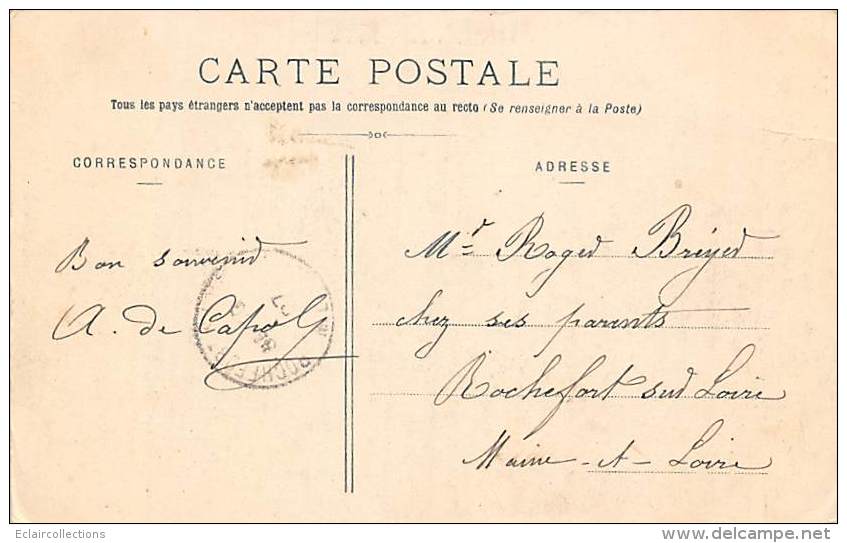 CARTE POSTALE
Tous les pays étrangers n'acceptent pas la correspondance au recto (Se renseigner à la Poste)
CORRESPONDANCE
ADRESSE
Bon souvenir
A. de
Mr Roger
chez ses parents
Rochefort sur Loire
Maine-et-Loire
Eclaircollections
delcampe.net